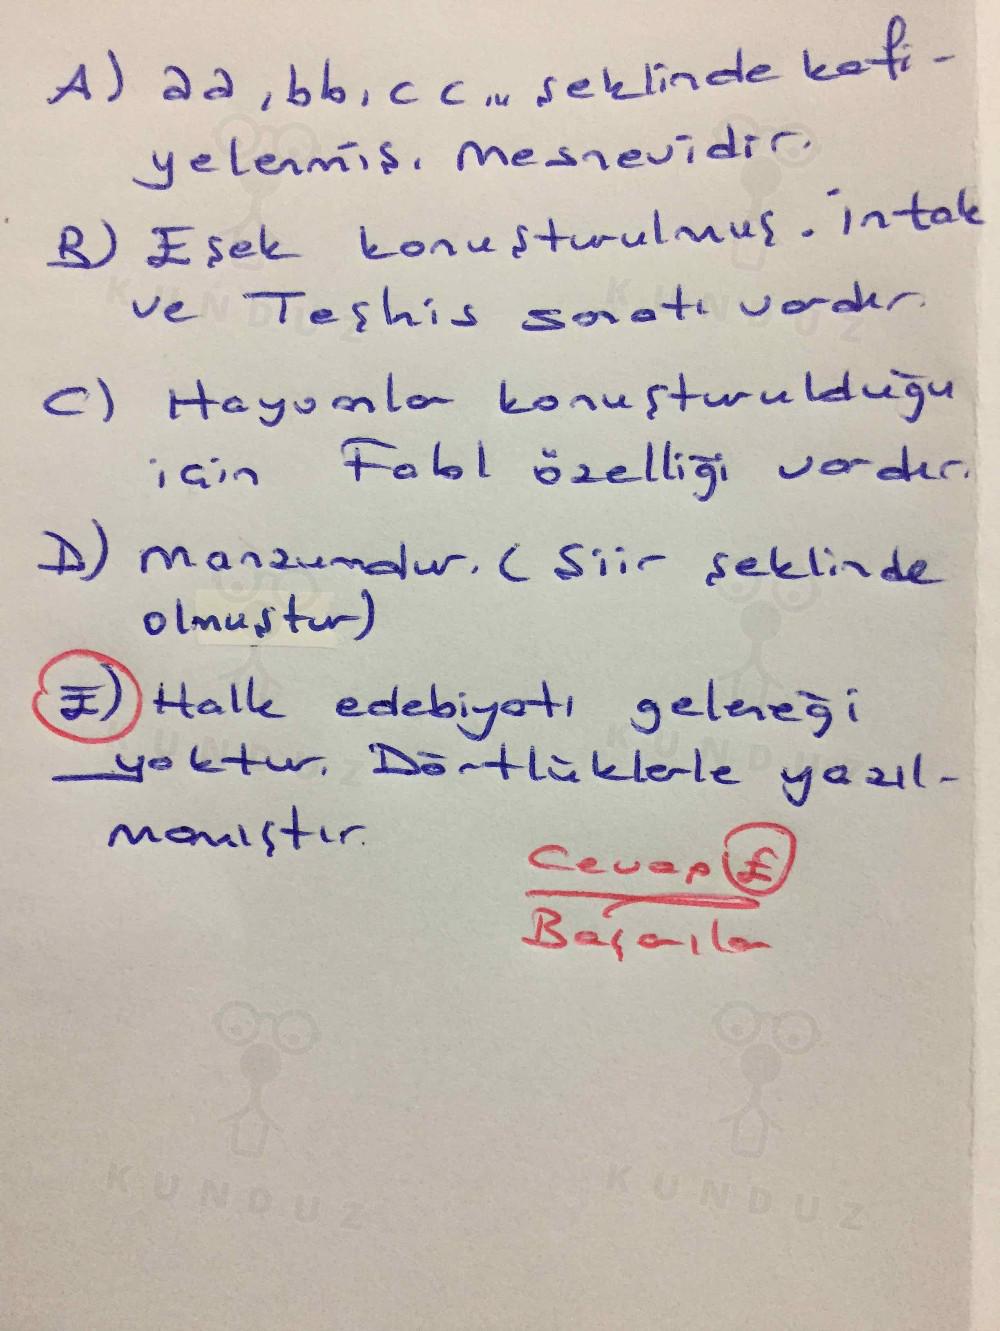 A) aa, bb, cc... şeklinde kafi-
yelenmiş. Mesnevidir.
B) Eşek konuşturulmuş. İntak
ve Teşhis sanatı vardır.
C) Hayvanlar konuşturulduğu
için Fabl özelliği vardır.
D) Manzumdur. (Şiir şeklinde
olmuştur)
E) Halk edebiyatı geleneği
yoktur. Dörtlüklerle yazıl-
mamıştır.
Cevap E
Başarılar
KUNDUZ
KUNDUZ
KUNDUZ
KUNDUZ
KUNDUZ
KUNDUZ